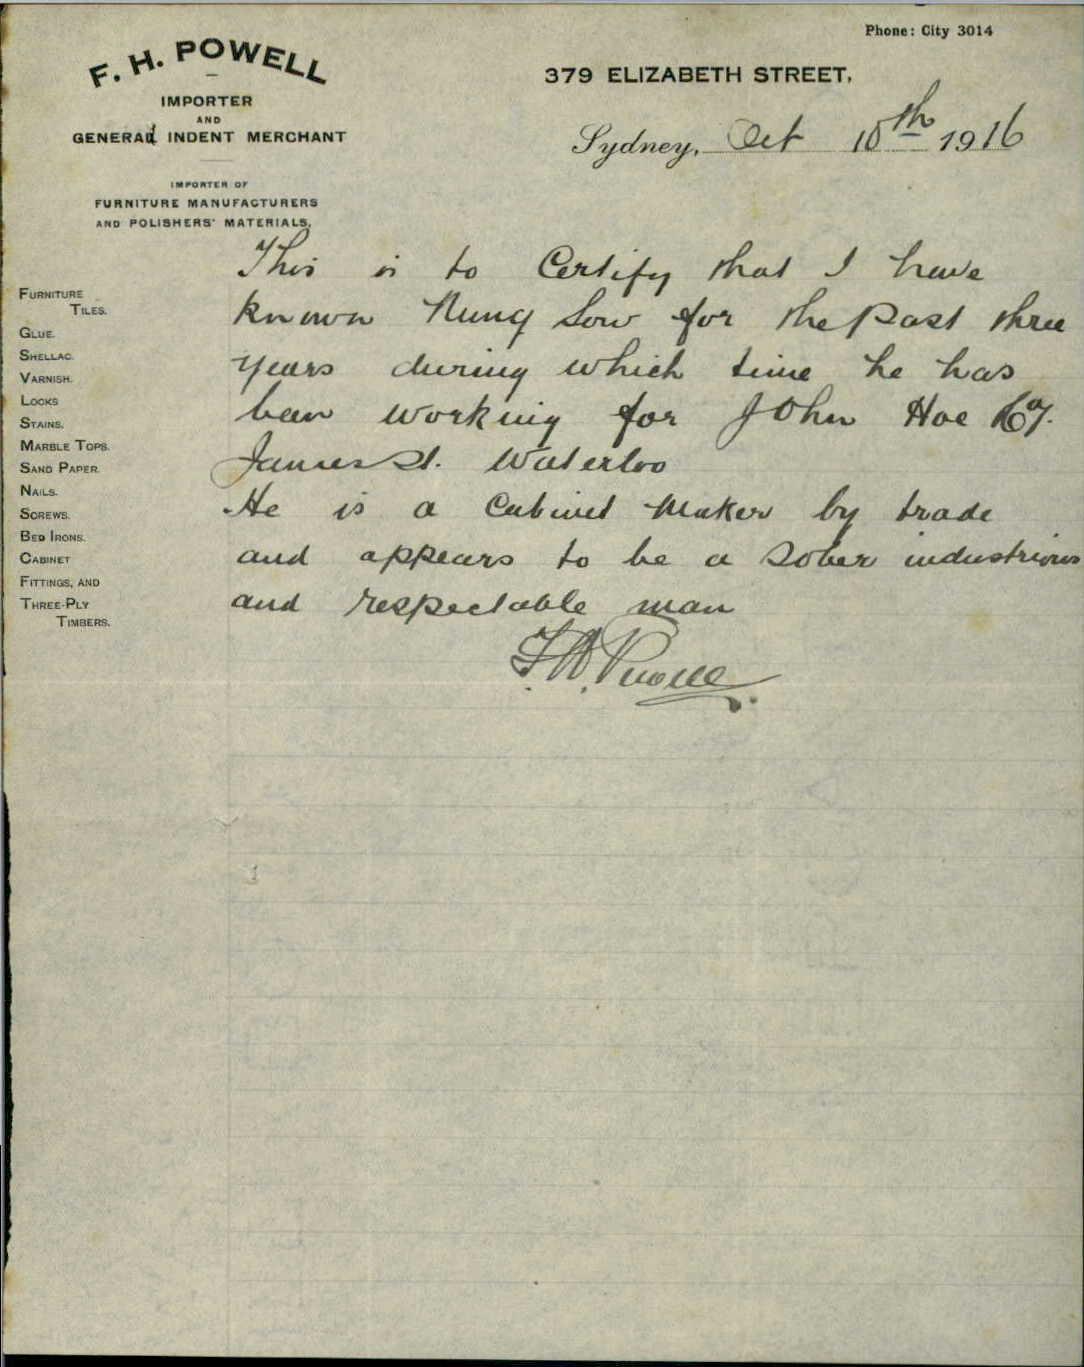 Phone: City 3014
F. H. POWELL
IMPORTER
AND
GENERAL INDENT MERCHANT
IMPORTER OF
FURNITURE MANUFACTURERS
AND POLISHERS' MATERIALS.
379 ELIZABETH STREET,
Sydney, Oct 10th 1916
FURNITURE
TILES.
GLUE.
SHELLAC.
VARNISH.
LOCKS
STAINS.
MARBLE TOPS.
SAND PAPER.
NAILS.
SCREWS.
BED IRONS.
CABINET
FITTINGS, AND
THREE-PLY
TIMBERS.
This is to Certify that I have
known Nung Sow for the Past three
years during which time he has
been working for John Hoe &
James St. Waterloo
He is a Cabinet Maker by trade
and appears to be a sober industrious
and respectable man
F.H. Powell